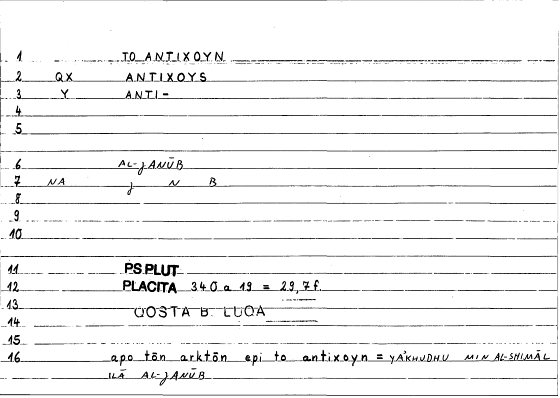 1 TO ANTIXOYN
2 QX ANTIXOYS
3 Y ANTI-
4
5
6 AL-jANŪB
7 NA j N B
8
9
10
11 PS PLUT
12 PLACITA 340 a 19 = 29,7f.
13 QOSTA B. LUQA
14
15
16 apo tōn arktōn epi to antixoyn = YA'KHUDHU MIN AL-SHIMĀL
ILĀ AL-jANŪB